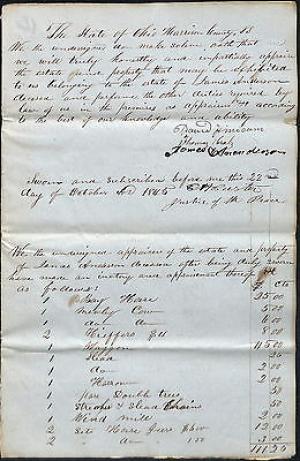 The State of Ohio Harrison County, SS
We the undersigned do make solemn oath that
we will truly honestly and impartially appraise
the estate and property that may be exhibited
to us belonging to the estate of James Anderson
deceased and perform the other duties required by
law of us in the premises as appraisers according
to the best of our knowledge and ability
David
Thomas
James Henderson
Sworn and subscribed before me this 22
day of October AD 1845
Justice of the Peace
We the undersigned appraisers of the estate and property
of James Anderson deceased after being duly sworn
have made an inventory and appraisement thereof
as follows: $ cts
1 Bay Horse 25.00
1 Cow 5.00
1 do do 6.00
2 Heiffers $4 8.00
1 Waggon
1 Slead 50
1 do 2.00
1 Harrow 2.00
1 pair Double trees 50
1 Stretcher & Slead Chains 50
1 Wind mill 2.00
2 Sets Horse Gears $6.00 12.00
2 do 1.50 3.00